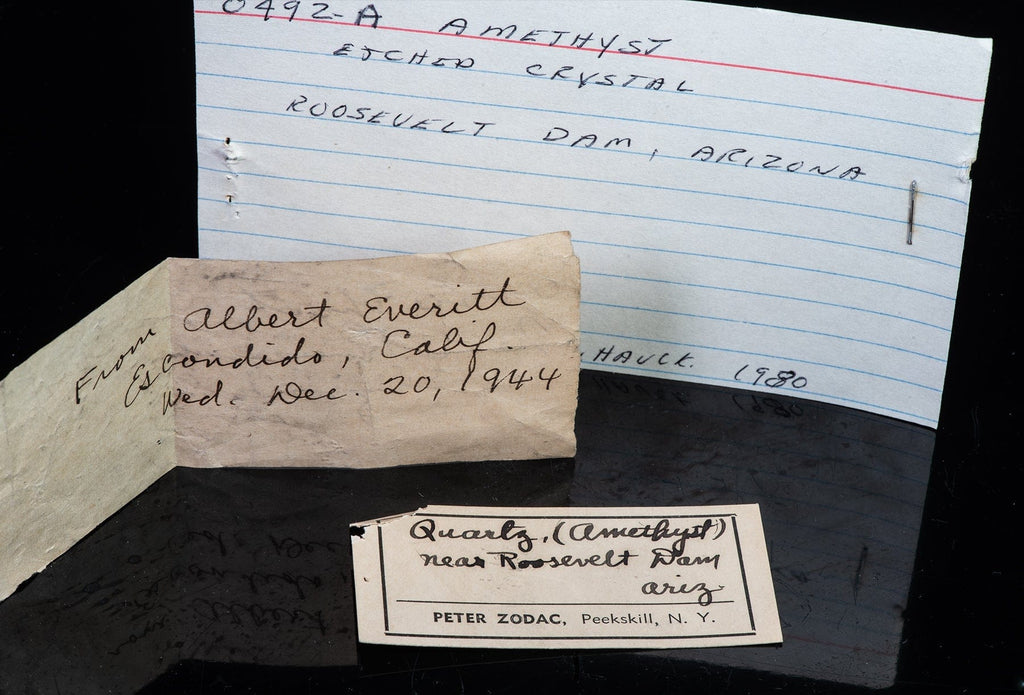 0492-A AMETHYST
ETCHED CRYSTAL
ROOSEVELT DAM, ARIZONA
HAUCK. 1980
From Albert Everitt
Escondido, Calif.
Wed. Dec. 20, 1944
Quartz, (Amethyst)
near Roosevelt Dam
Ariz
PETER ZODAC, Peekskill, N. Y.